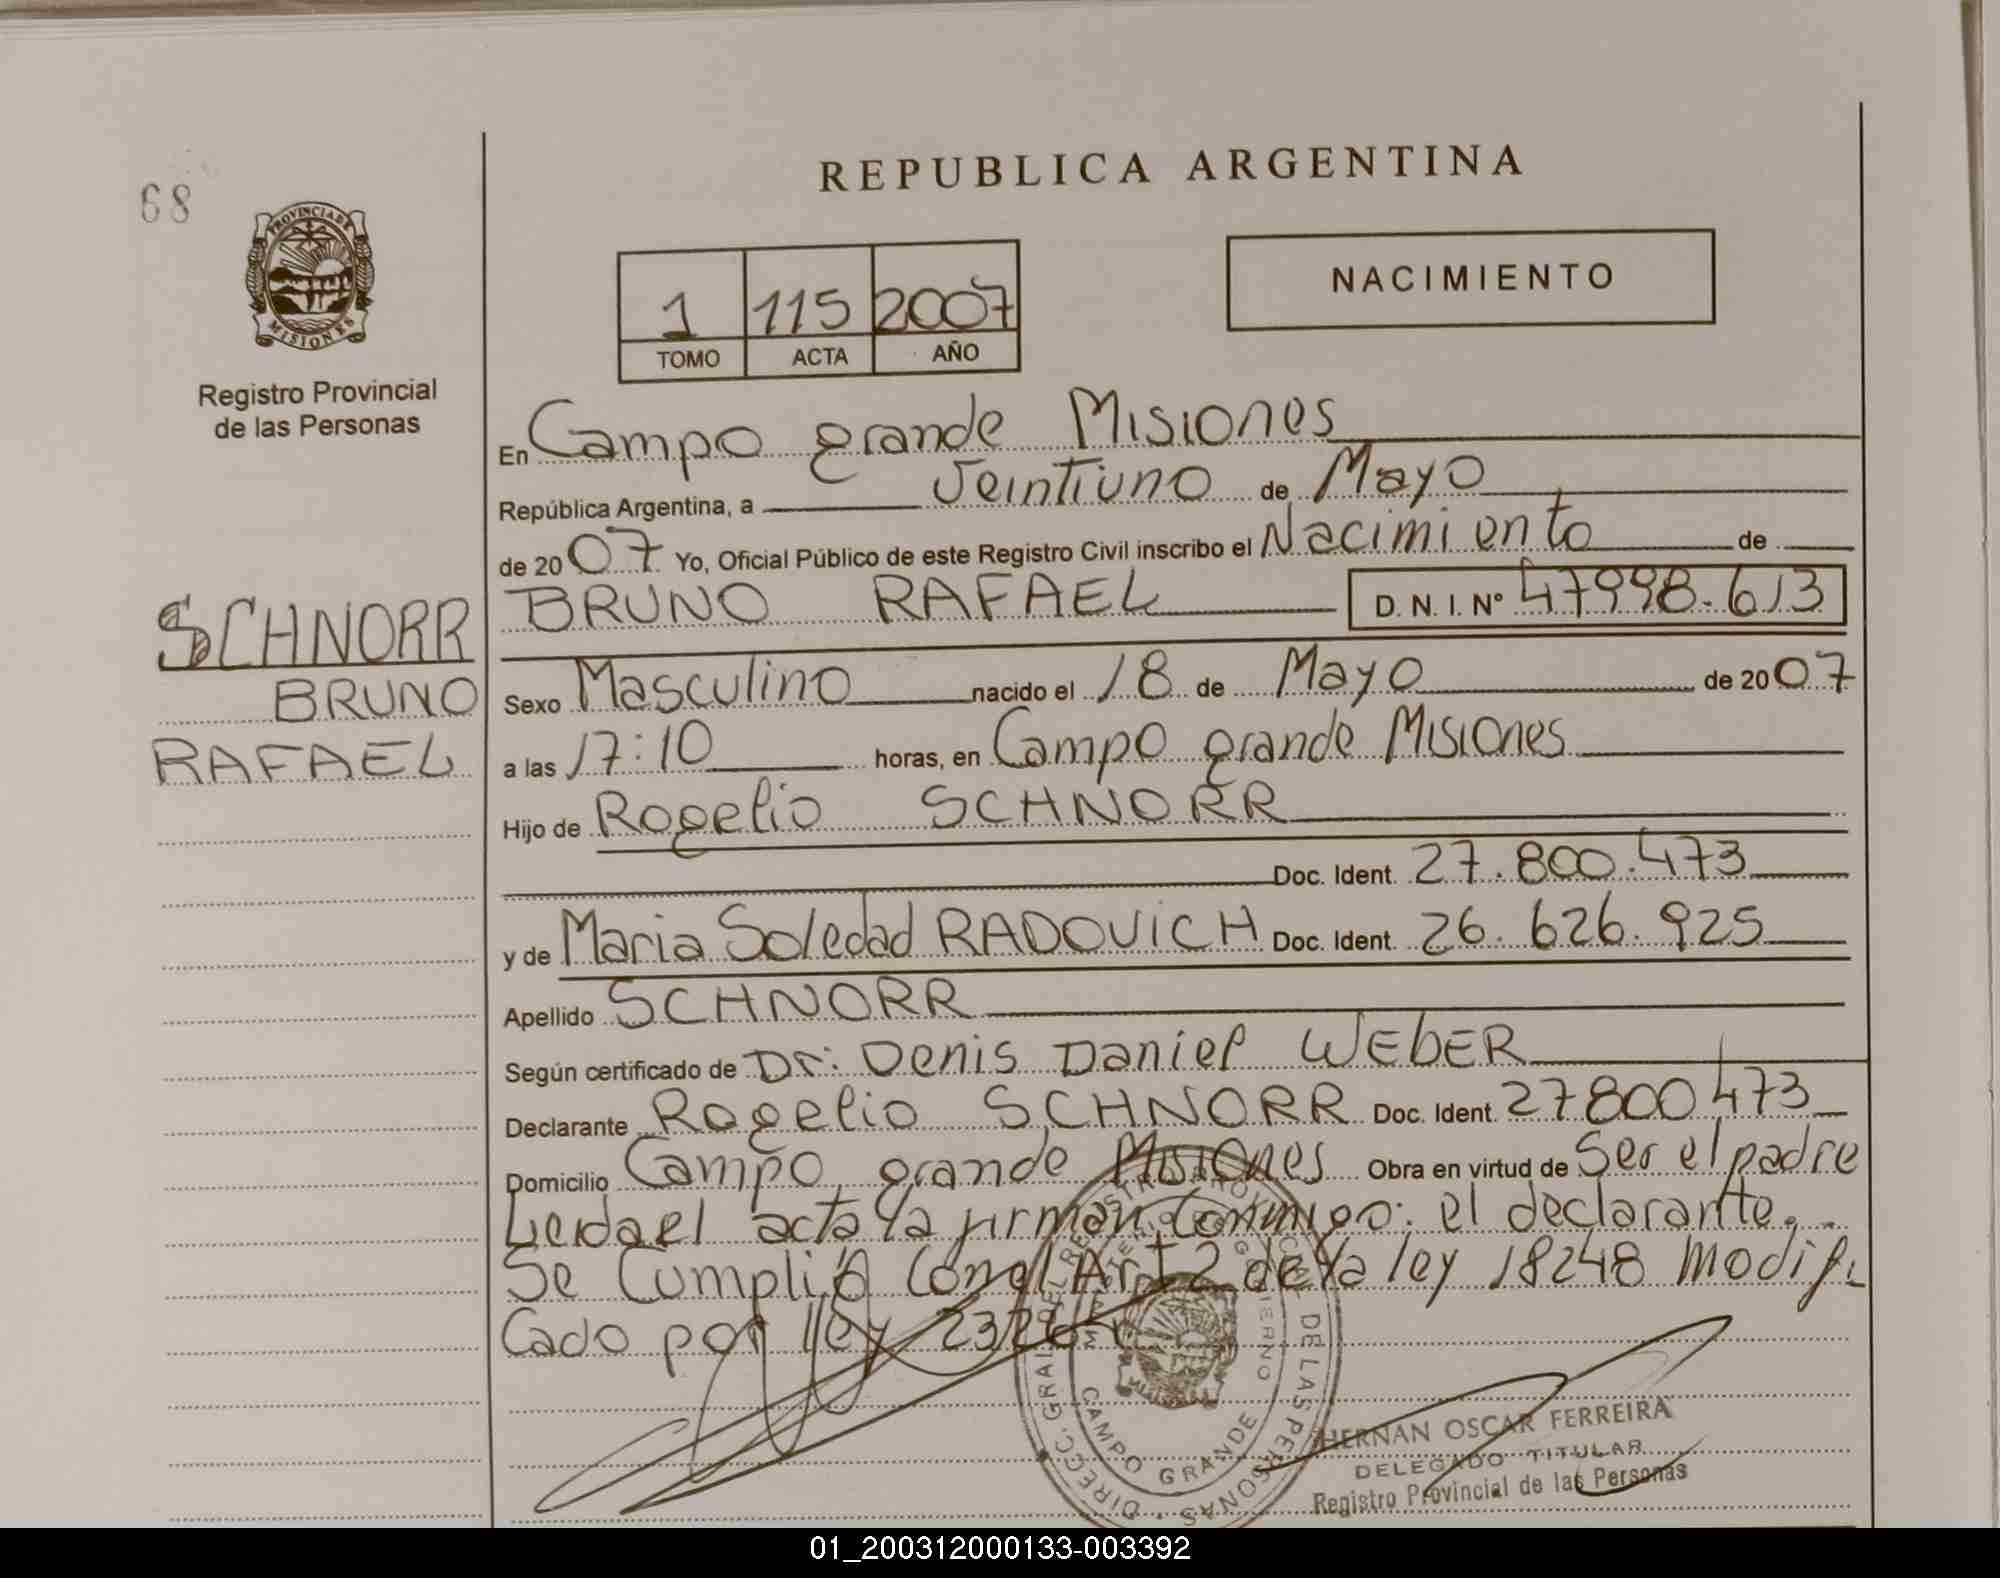 REPUBLICA ARGENTINA
68
PROVINCIA DE
MISIONES
Registro Provincial
de las Personas
NACIMIENTO
1 115 2007
TOMO ACTA AÑO
En Campo grande Misiones
República Argentina, a Veintiuno de Mayo
de 2007 Yo, Oficial Público de este Registro Civil inscribo el Nacimiento de
BRUNO RAFAEL D. N. I. Nº 47998.613
SCHNORR
BRUNO
RAFAEL
Sexo Masculino nacido el 18 de Mayo de 2007
a las 17:10 horas, en Campo grande Misiones
Hijo de Rogelio SCHNORR
Doc. Ident. 27.800.473
y de Maria Soledad RADOVICH Doc. Ident. 26.626.925
Apellido SCHNORR
Según certificado de Dr: Denis Daniel WEbER
Declarante Rogelio SCHNORR Doc. Ident. 27800473
Domicilio Campo grande Misiones Obra en virtud de Ser el padre
Leida el acta la firman Conmigo: el declarante.
Se Cumplió Con el Art 2 de la ley 18248 Modifi
Cado por ley
DIRECC. GRAL. DEL REGISTRO PROVINCIAL DE LAS PERSONAS
CAMPO GRANDE
HERNAN OSCAR FERREIRA
DELEGADO TITULAR
Registro Provincial de las Personas
01_200312000133-003392